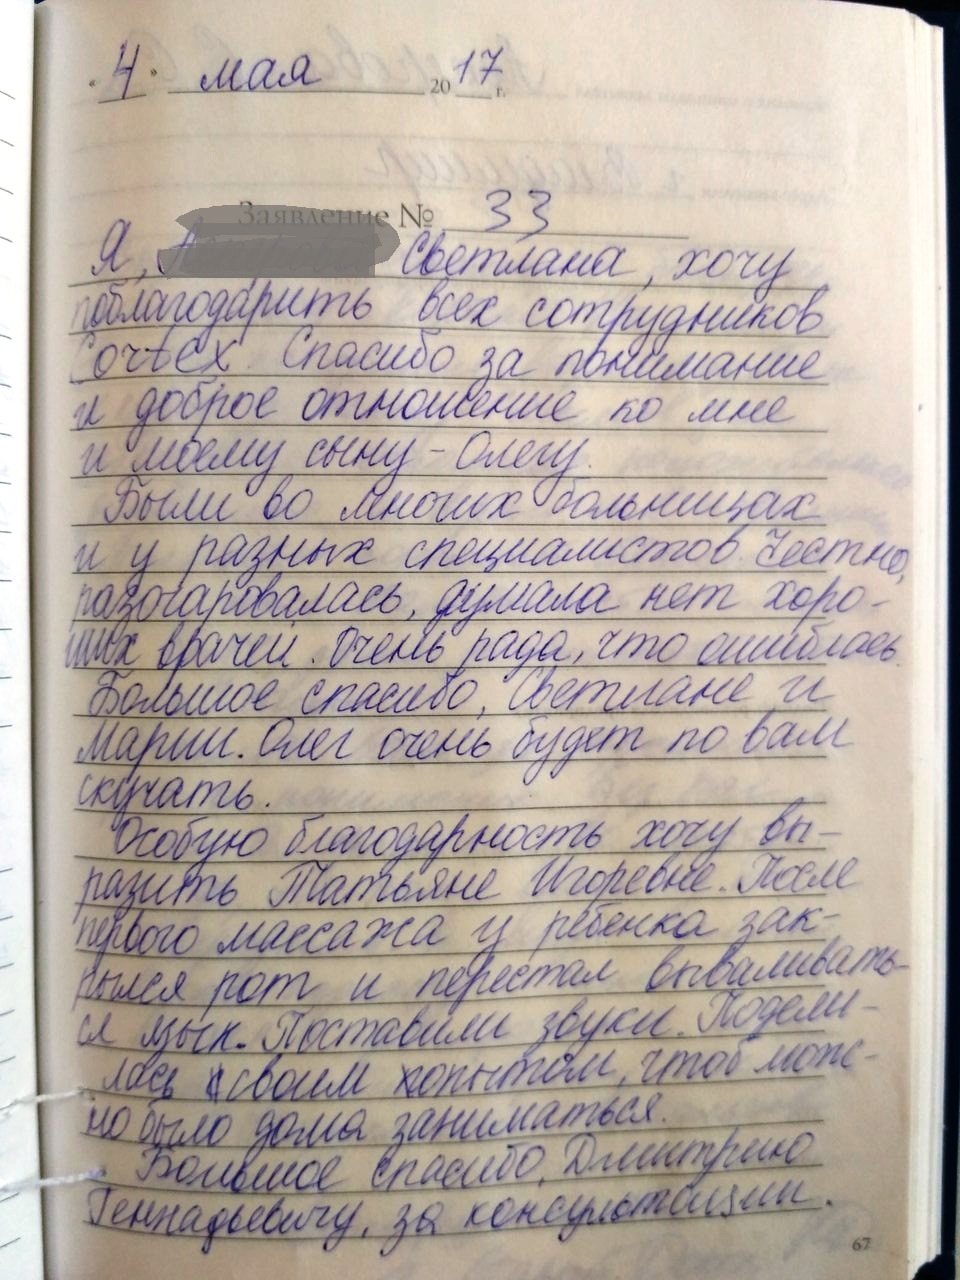 « 4 » мая 2017 г.
Заявление № 33
Я, Светлана, хочу
поблагодарить всех сотрудников
Спасибо за понимание
и доброе отношение ко мне
и моему сыну - Олегу.
Были во многих больницах
и у разных специалистов. Честно,
разочаровалась, думала нет хоро-
ших врачей. Очень рада, что ошиблась.
Большое спасибо, Светлане и
Марии. Олег очень будет по вам
скучать.
Особую благодарность хочу вы-
разить Татьяне Игоревне. После
первого массажа у ребенка зак-
рылся рот и перестал вываливать-
ся язык. Поставили звуки. Подели-
лась своим опытом, чтоб мож-
но было дома заниматься.
Большое спасибо, Дмитрию
Геннадьевичу, за консультации.
67